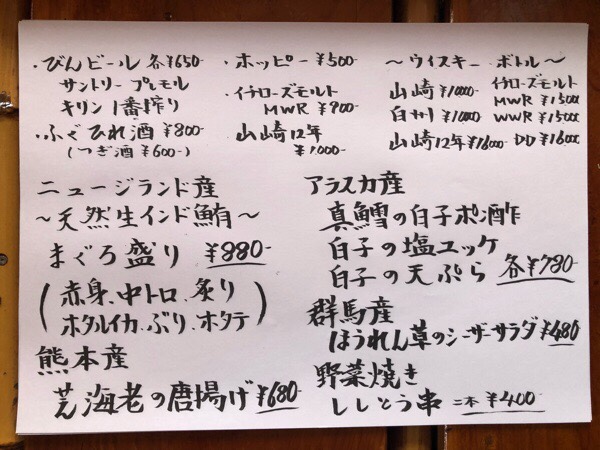 ・びんビール 各¥650-
サントリー プレモル
キリン 1番搾り
・ふぐひれ酒 ¥800-
(つぎ酒 ¥600-)
・ホッピー ¥500
・イチローズモルト
MWR ¥900-
・山崎12年
¥1000-
〜ウイスキー ボトル〜
山崎 ¥10000
白州 ¥10000
山崎12年 ¥16000
イチローズモルト
MWR ¥15000
WWR ¥15000
DD ¥16000
ニュージランド産
〜天然生インド鮪〜
まぐろ盛り ¥880-
(赤身、中トロ、炙り
ホタルイカ、ぶり、ホタテ)
熊本産
芝海老の唐揚げ ¥680-
アラスカ産
真鱈の白子ポン酢
白子の塩ユッケ
白子の天ぷら 各¥780-
群馬産
ほうれん草のシーザーサラダ ¥480
野菜焼き
ししとう串 二本 ¥400-